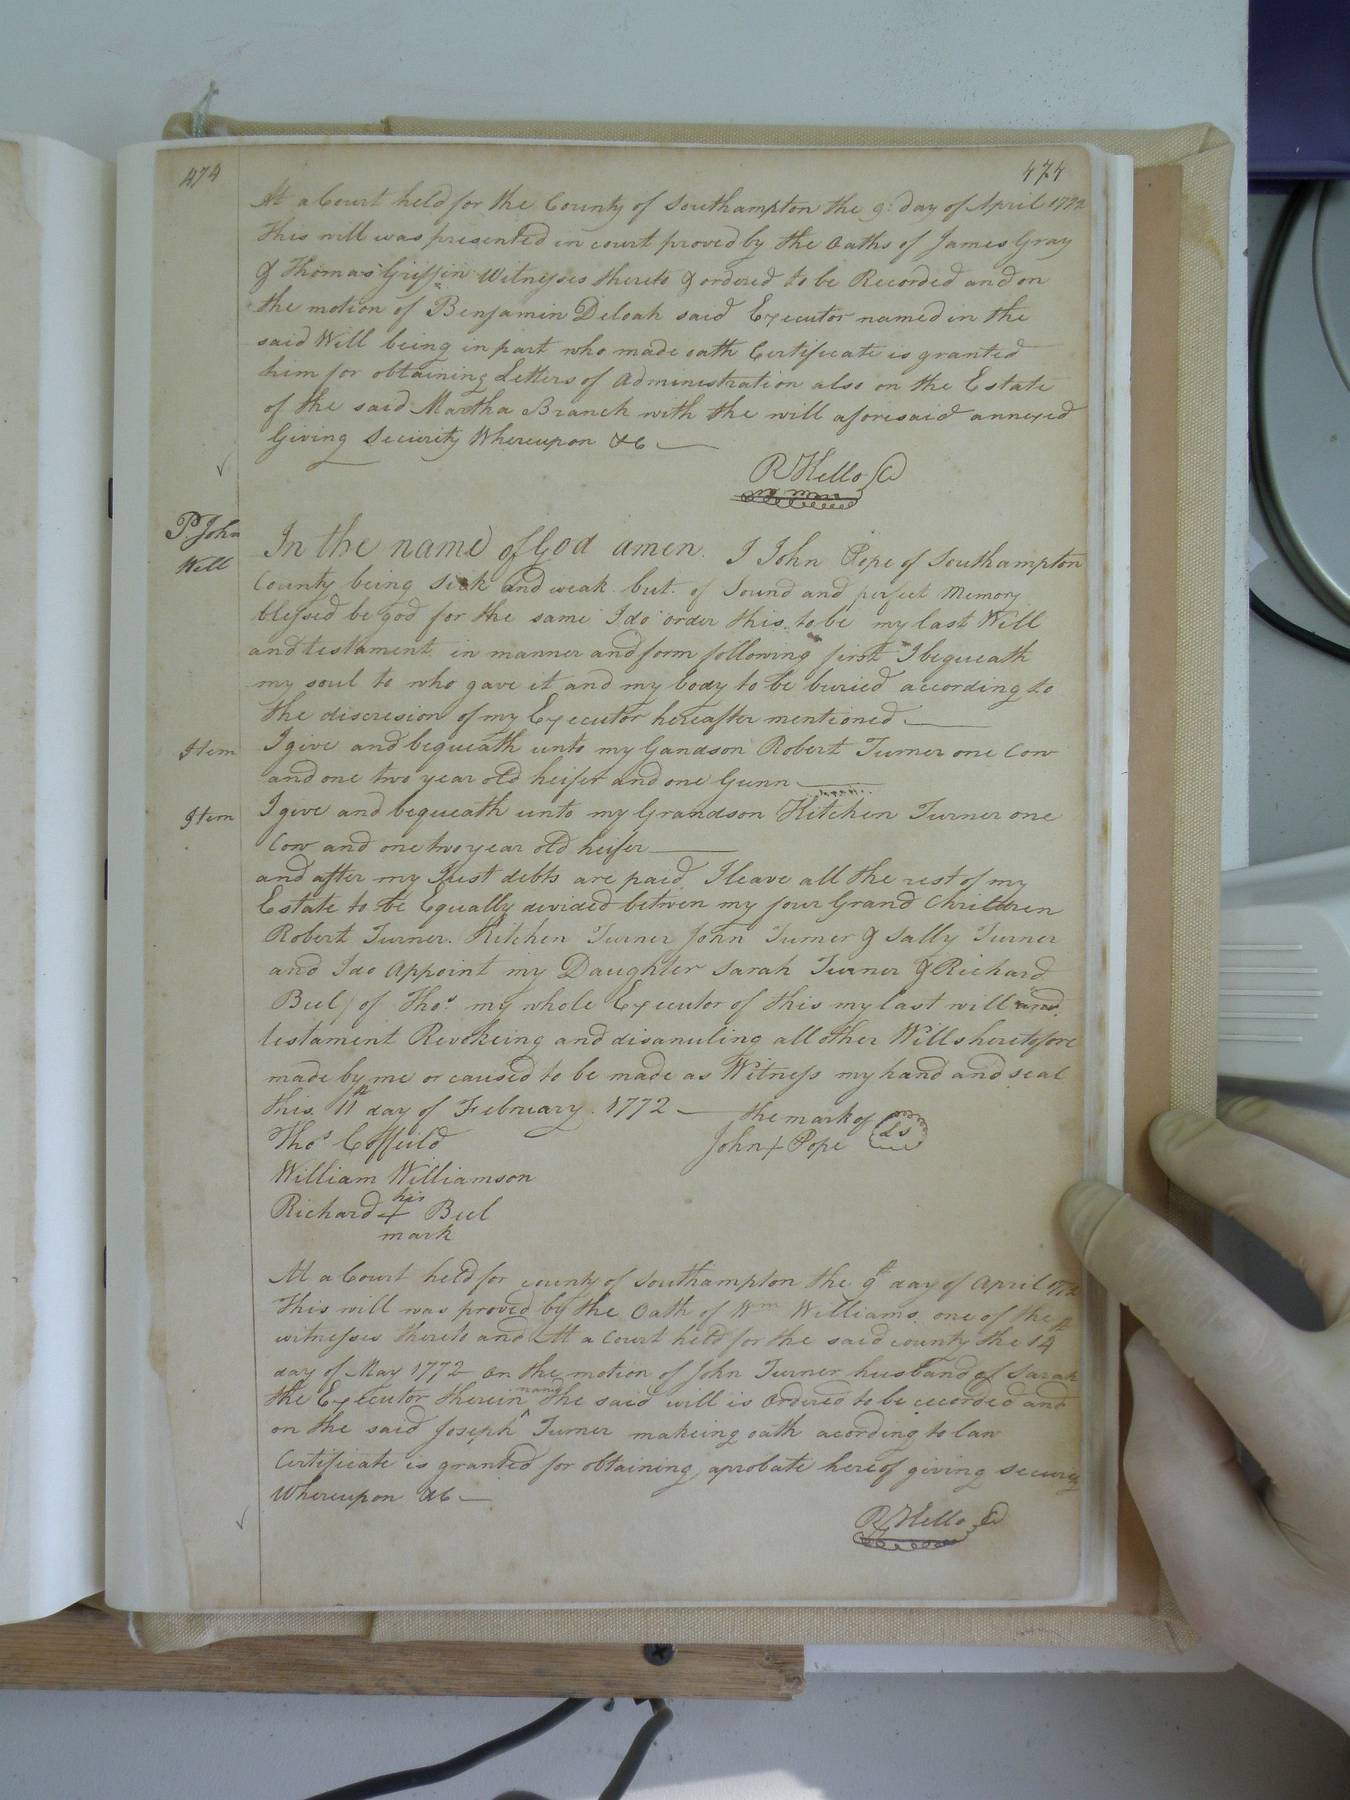 474
474
At a Court held for the County of Southampton the 9: day of April 1772
This will was presented in court proved by the Oaths of James Gray
& Thomas Griffin Witnesses thereto & ordered to be Recorded and on
the motion of Benjamin Deloah said Executor named in the
said Will being in part who made oath Certificate is granted
him for obtaining Letters of Administration also on the Estate
of the said Martha Branch with the will aforesaid annexed
Giving Security Whereupon &c
R Kello C
P John
Will
In the name of God amen. I John Pope of Southampton
County being sick and weak but of Sound and perfect Memory
blessed be god for the same I do order this to be my last Will
and testament in manner and form following first I bequeath
my soul to who gave it and my body to be buried according to
the discresion of my Executor hereafter mentioned
Item
I give and bequeath unto my Gandson Robert Turner one Cow
and one two year old heifer and one Gunn
Item
I give and bequeath unto my Grandson Kitchen Turner one
Cow and one two year old heifer
and after my Just debts are paid I leave all the rest of my
Estate to be Equally divided betwen my four Grand Children
Robert Turner. Kitchen Turner John Turner & Sally Turner
and I do Appoint my Daughter Sarah Turner & Richard
Beel of Thos. my whole Executor of this my last will and
testament Revokeing and disanuling all other Wills heretofore
made by me or caused to be made as Witness my hand and seal
this 11th day of February. 1772
the mark of
John + Pope
Ls
Thos Coffield
William Williamson
his
Richard + Beel
mark
At a Court held for county of Southampton the 9th day of April 1772
This will was proved by the Oath of Wm Williams one of the
witnesses thereto and At a court held for the said county the 14th
day of May 1772 on the motion of John Turner husband of Sarah
the Executor therein named the said will is Ordered to be recorded and
on the said Joseph Turner makeing oath acording to law
Certificate is granted for obtaining aprobate hereof giving security
Whereupon &c
R Kello C